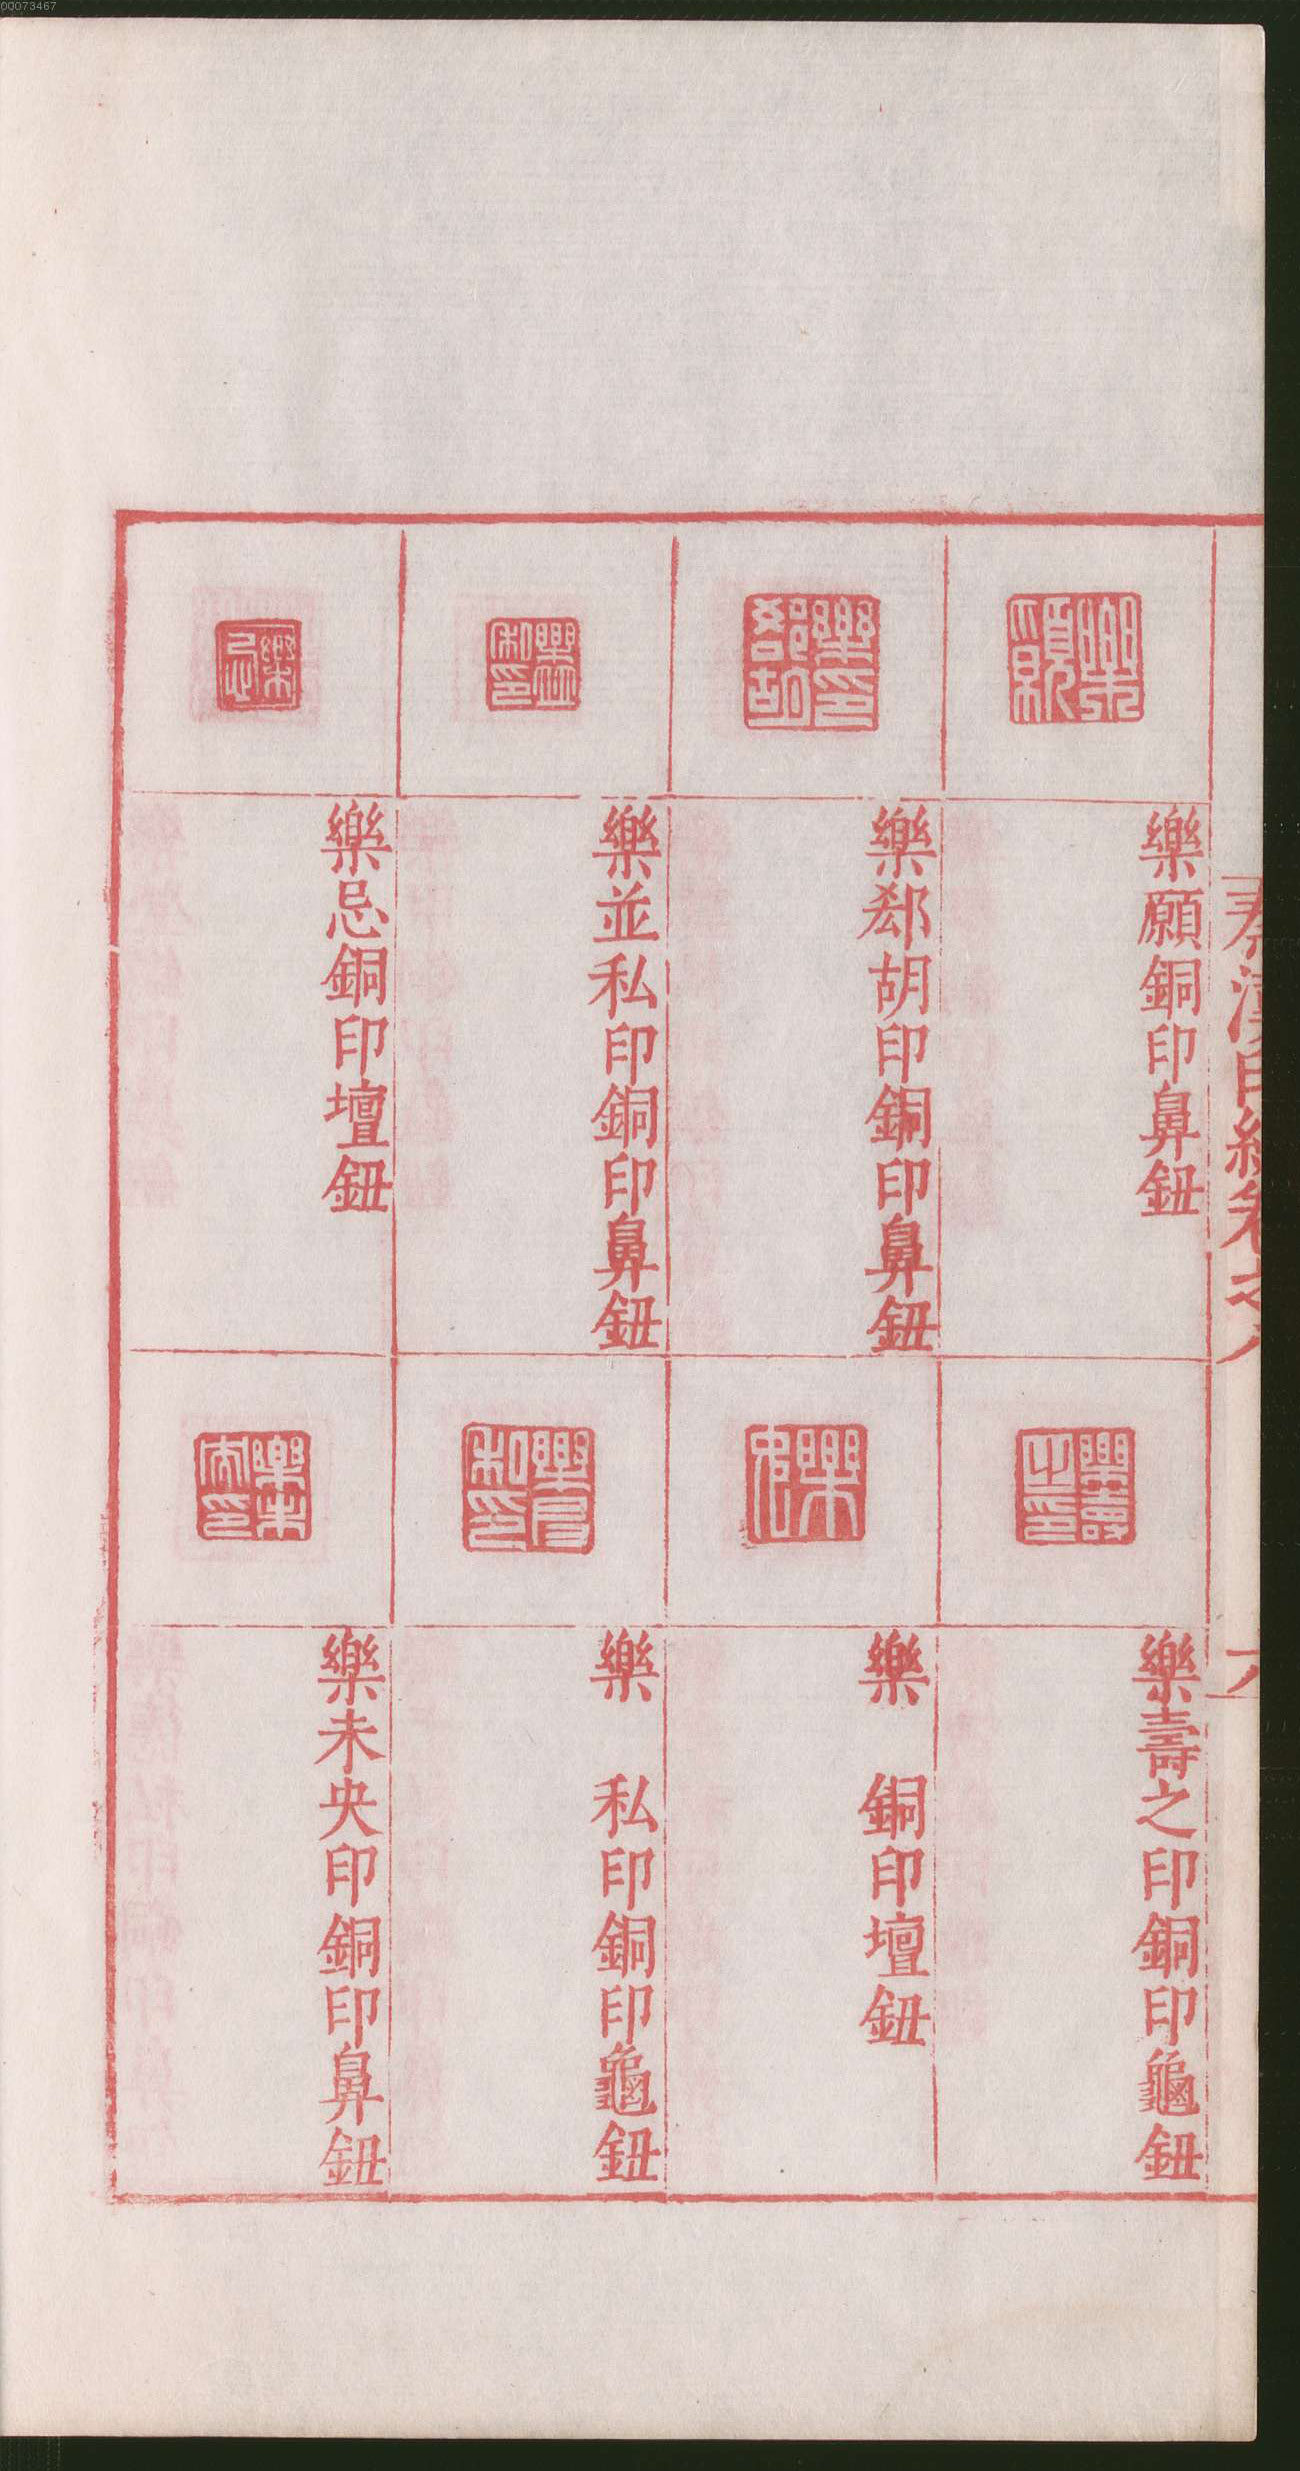 00073467
秦漢印統卷之八
六
樂願銅印鼻鈕
樂郄胡印銅印鼻鈕
樂並私印銅印鼻鈕
樂忌銅印壇鈕
樂壽之印銅印龜鈕
樂 銅印壇鈕
樂 私印銅印龜鈕
樂未央印銅印鼻鈕